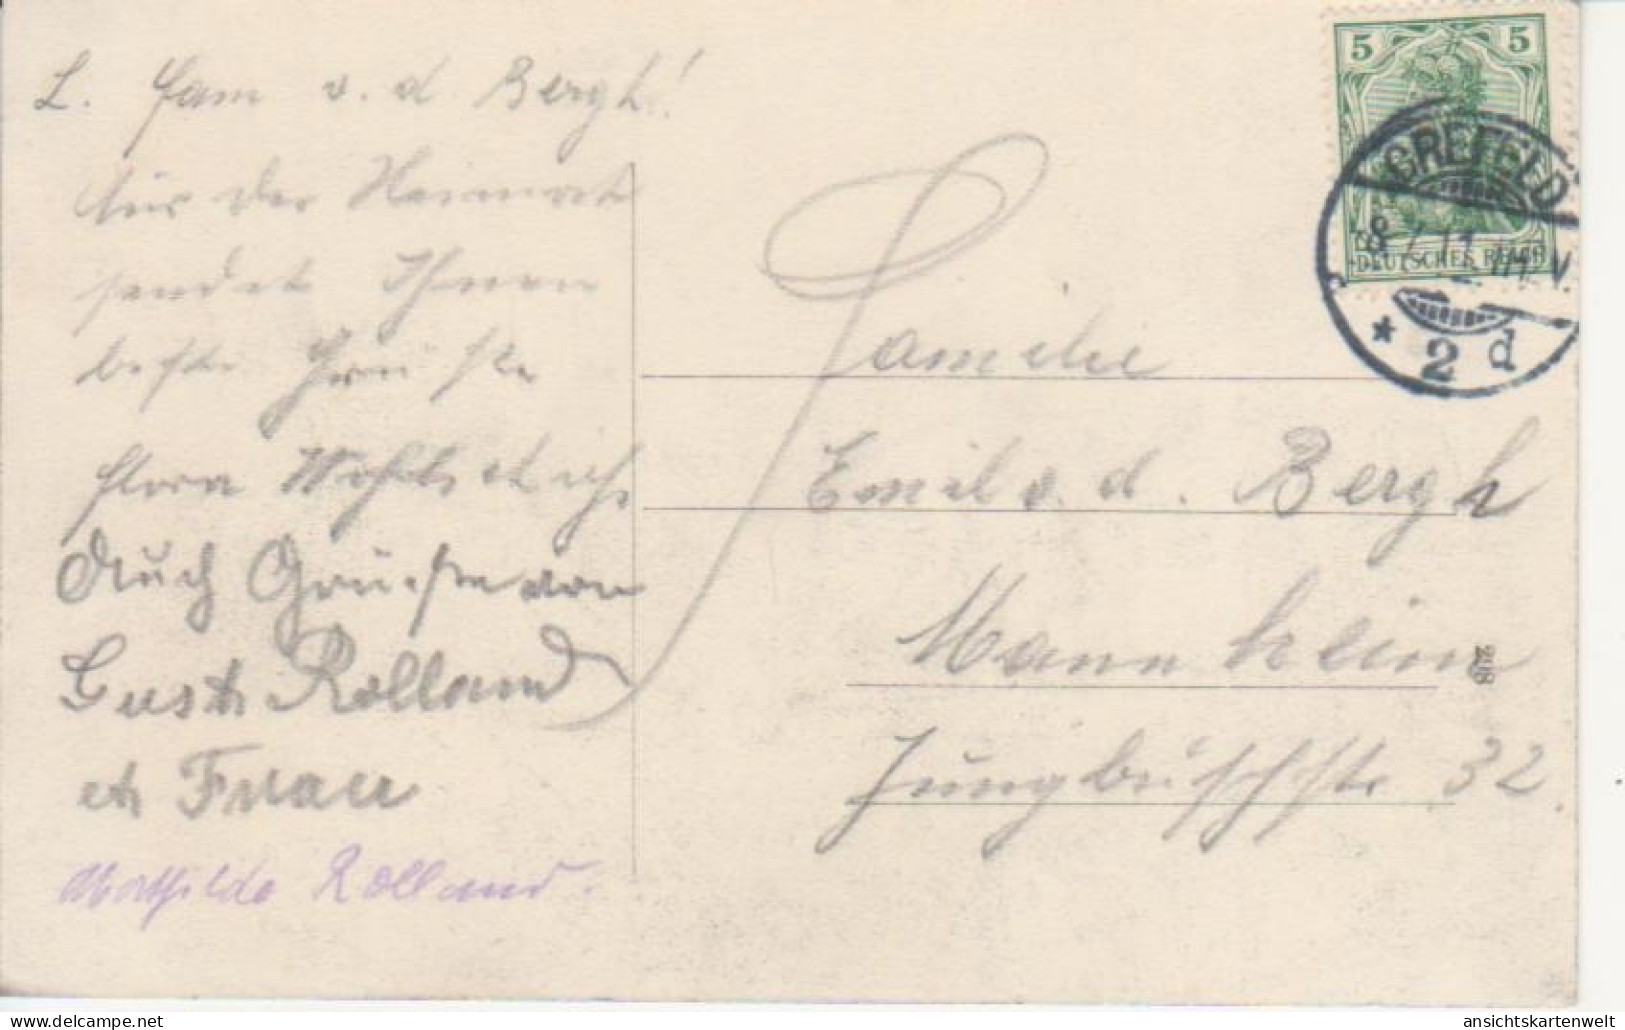 L. Fam v. d. Bergh!
Aus der Heimat
sendet Ihnen
beste Grüsse
Flora
Auch Grüsse von
Gust. Rolland
et Frau
Mathilde Rolland.
Familie
Emil v. d. Bergh
Mannheim
Jungbuschstr. 32.
5 5
DEUTSCHES REICH
CREFELD
8.7.11. 11-12V.
* 2 d
208
delcampe.net
ansichtskartenwelt